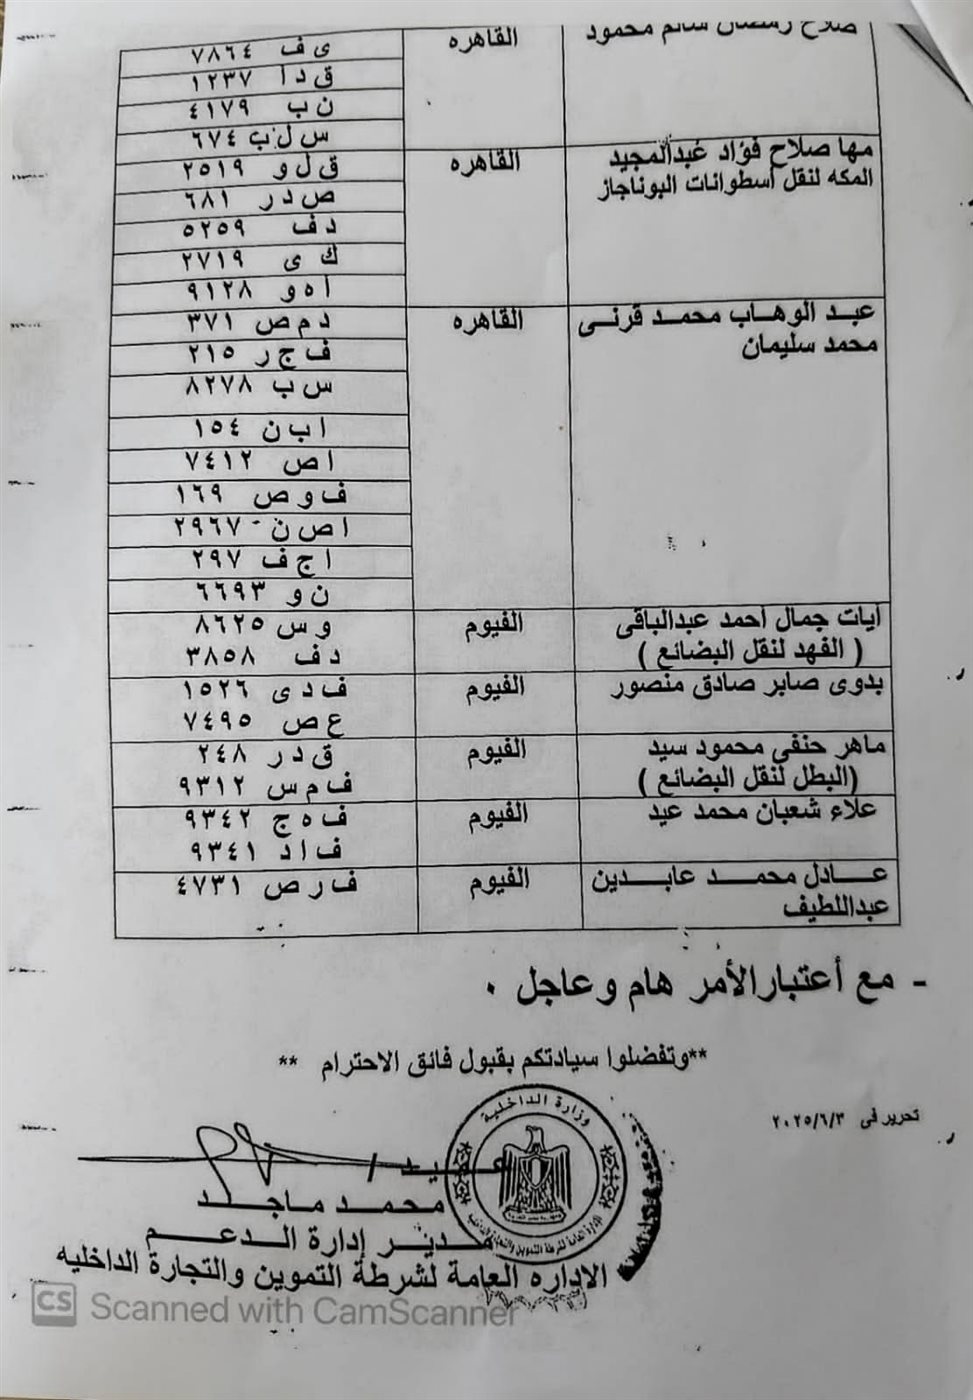 صلاح رمضان سالم محمود القاهره ى ف ٧٨٦٤
ق د أ ١٢٣٧
ن ب ٤١٧٩
س ل ب ٦٧٤
مها صلاح فؤاد عبدالمجيد القاهره ق ل و ٢٥١٩
المكه لنقل أسطوانات البوتاجاز ص د ر ٦٨١
د ف ٥٢٥٩
ك ى ٢٧١٩
ا ه و ٩١٢٨
عبد الوهاب محمد قرنى القاهره د م ص ٣٧١
محمد سليمان ف ج ر ٢١٥
س ب ٨٢٧٨
ا ب ن ١٥٤
ا ص ٧٤١٢
ف و ص ١٦٩
ا ص ن ٢٩٦٧
ا ج ف ٢٩٧
ن و ٦٦٩٣
آيات جمال أحمد عبدالباقى الفيوم و س ٨٦٢٥
( الفهد لنقل البضائع ) د ف ٣٨٥٨
بدوى صابر صادق منصور الفيوم ف د ى ١٥٢٦
ع ص ٧٤٩٥
ماهر حنفى محمود سيد الفيوم ق د ر ٢٤٨
(البطل لنقل البضائع ) ف م س ٩٣١٢
علاء شعبان محمد عيد الفيوم ف ه ج ٩٣٤٢
ف ا د ٩٣٤١
عادل محمد عابدين الفيوم ف ر ص ٤٧٣١
عبداللطيف
- مع أعتبارالأمر هام وعاجل .
**وتفضلوا سيادتكم بقبول فائق الاحترام **
تحرير فى ٢٠٢٥/٦/٣
وزارة الداخلية
عميد /
محمد ماجد
مدير إدارة الدعم
الإداره العامة لشرطة التموين والتجارة الداخليه
CS Scanned with CamScanner